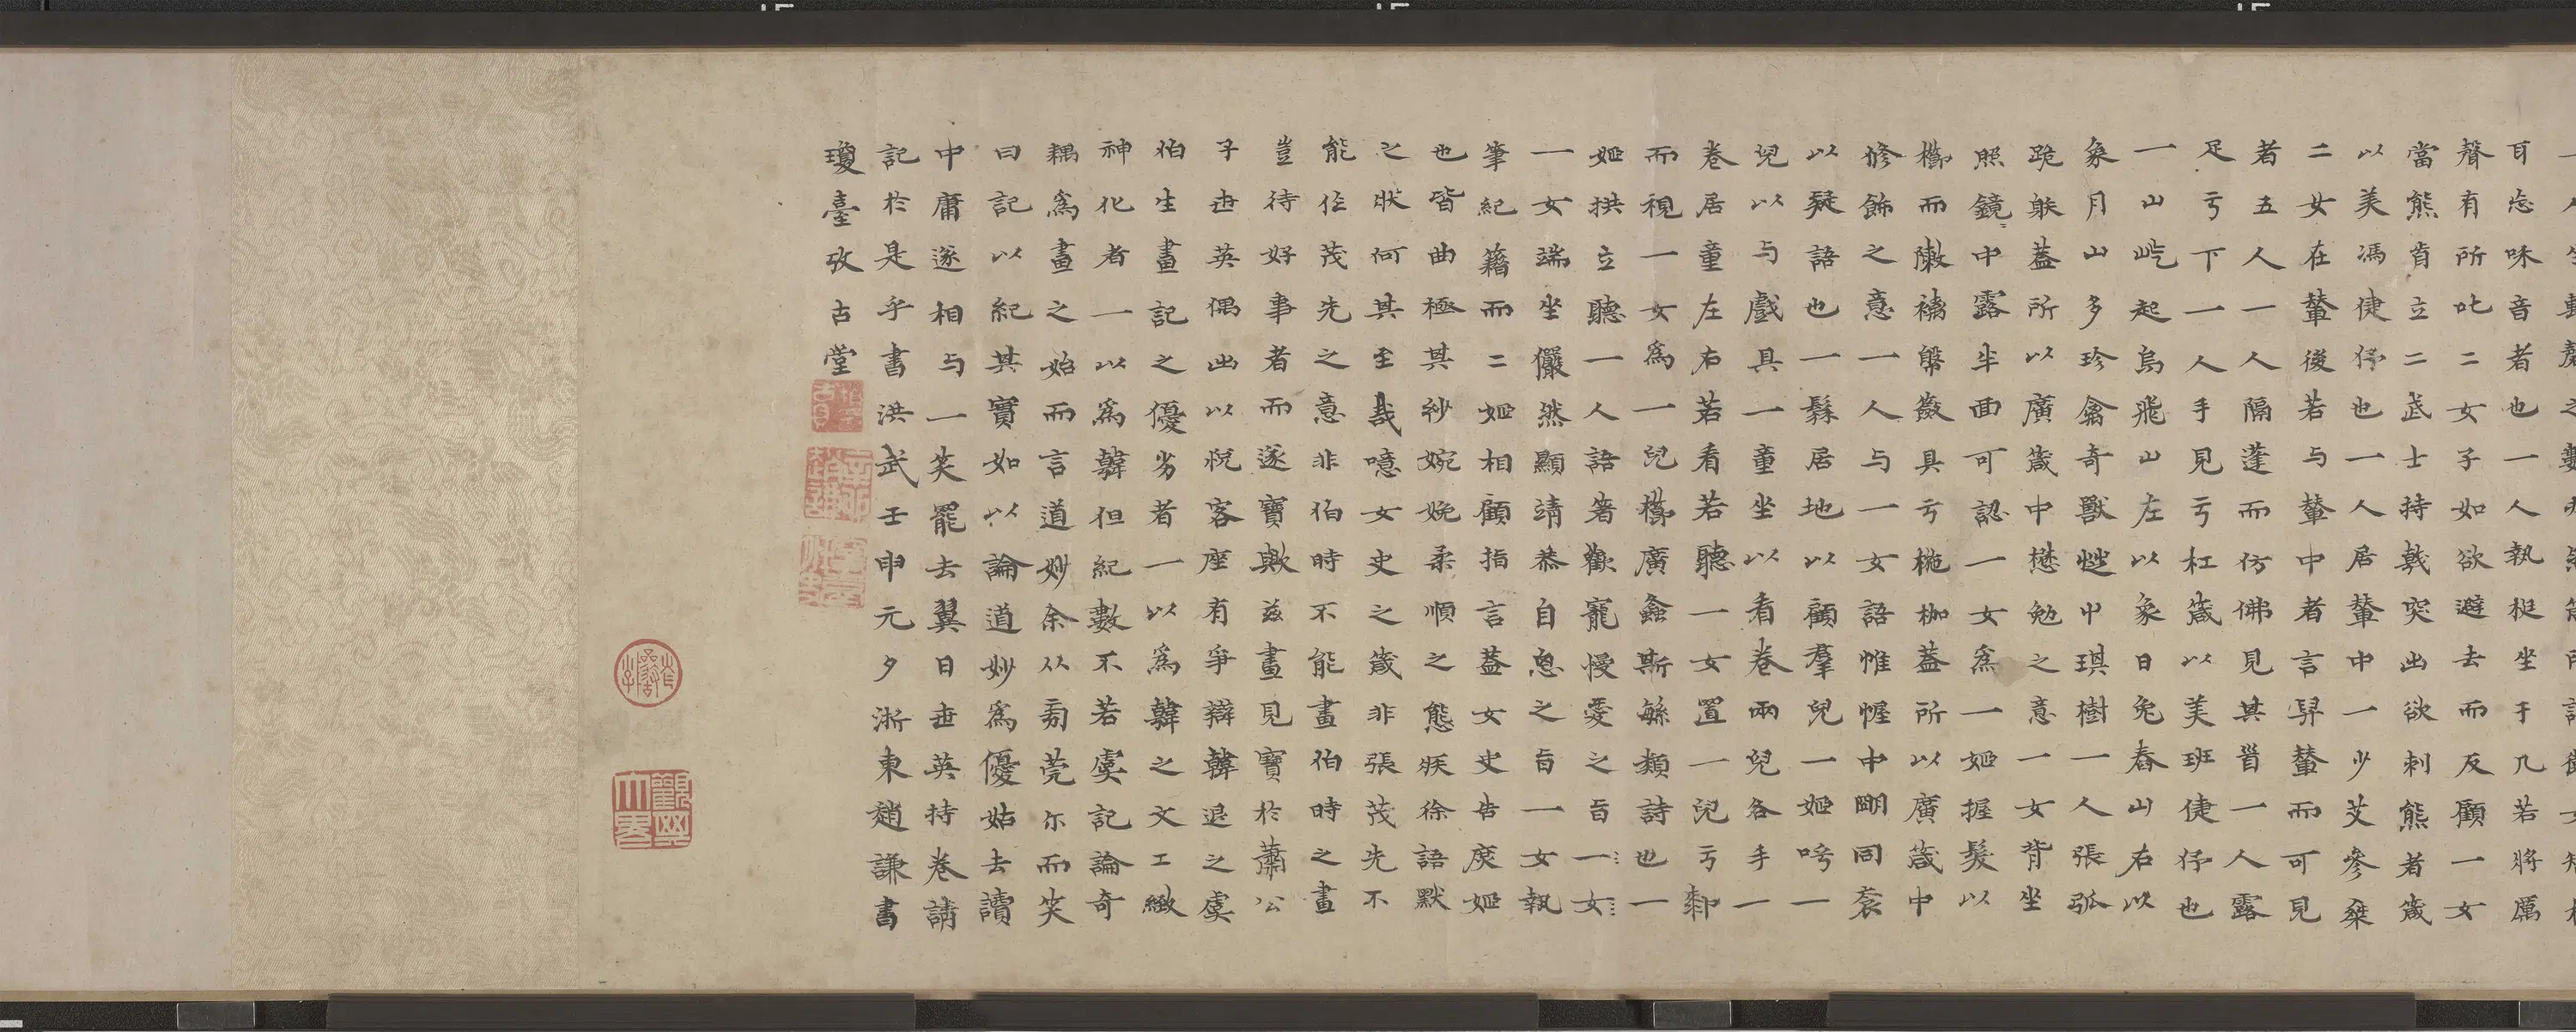 耳忘味音者也一人執梃坐于几若將厲
聲有所叱二女子如欲避去而反顧一女
當熊肯立二武士持戟突出欲刺熊者箴
以美馮倢伃也一人居輦中一少艾參椉
二女在輦後若与輦中者言舁輦而可見
者五人一人隔蓬而仿佛見其首一人露
足亏下一人手見亏杠箴以美班倢伃也
一山屹起鳥飛山左以象日兔舂山右以
象月山多珍禽奇獸屮琪樹一人張弧
跪躲蓋所以廣箴中懋勉之意一女背坐
照鏡中露半面可認一女為一姬握髮以
櫛而陳槃奩具亏椸枷蓋所以廣箴中
修飾之意一人与一女語帷幄中同衾
以疑語也一髹居地以顧羣兒一姬呺一
兒以与戲具一童坐以看卷兩兒各手一
卷居童左右若看若聽一女置一兒亏厀
而視一女爲一兒櫛廣螽斯緐類詩也一
姬拱立聽一人語箸歡寵慢愛之旨一女
一女端坐儼然顯靖恭自思之旨一女執
筆紀籍而二姬相顧指言蓋女史告庶姬
也皆曲極其紗婉娩柔順之態疾徐語默
之狀何其至哉噫女史之箴非張茂先不
能任茂先之意非伯時不能畫伯時之畫
豈待好事者而遂寶歟兹畫見寶於蕭公
子世英偶出以悅客座有爭辯韓退之虞
伯生畫記之優劣者一以爲韓之文工緻
神化者一以爲韓但紀數不若虞記論奇
耦爲畫之始而言道妙余从㫄莞尒而笑
曰記以紀其實如以論道妙爲優姑去讀
中庸遂相与一笑罷去翼日世英持卷請
記於是乎書洪武壬申元夕浙東趙謙書
瓊臺攷古堂